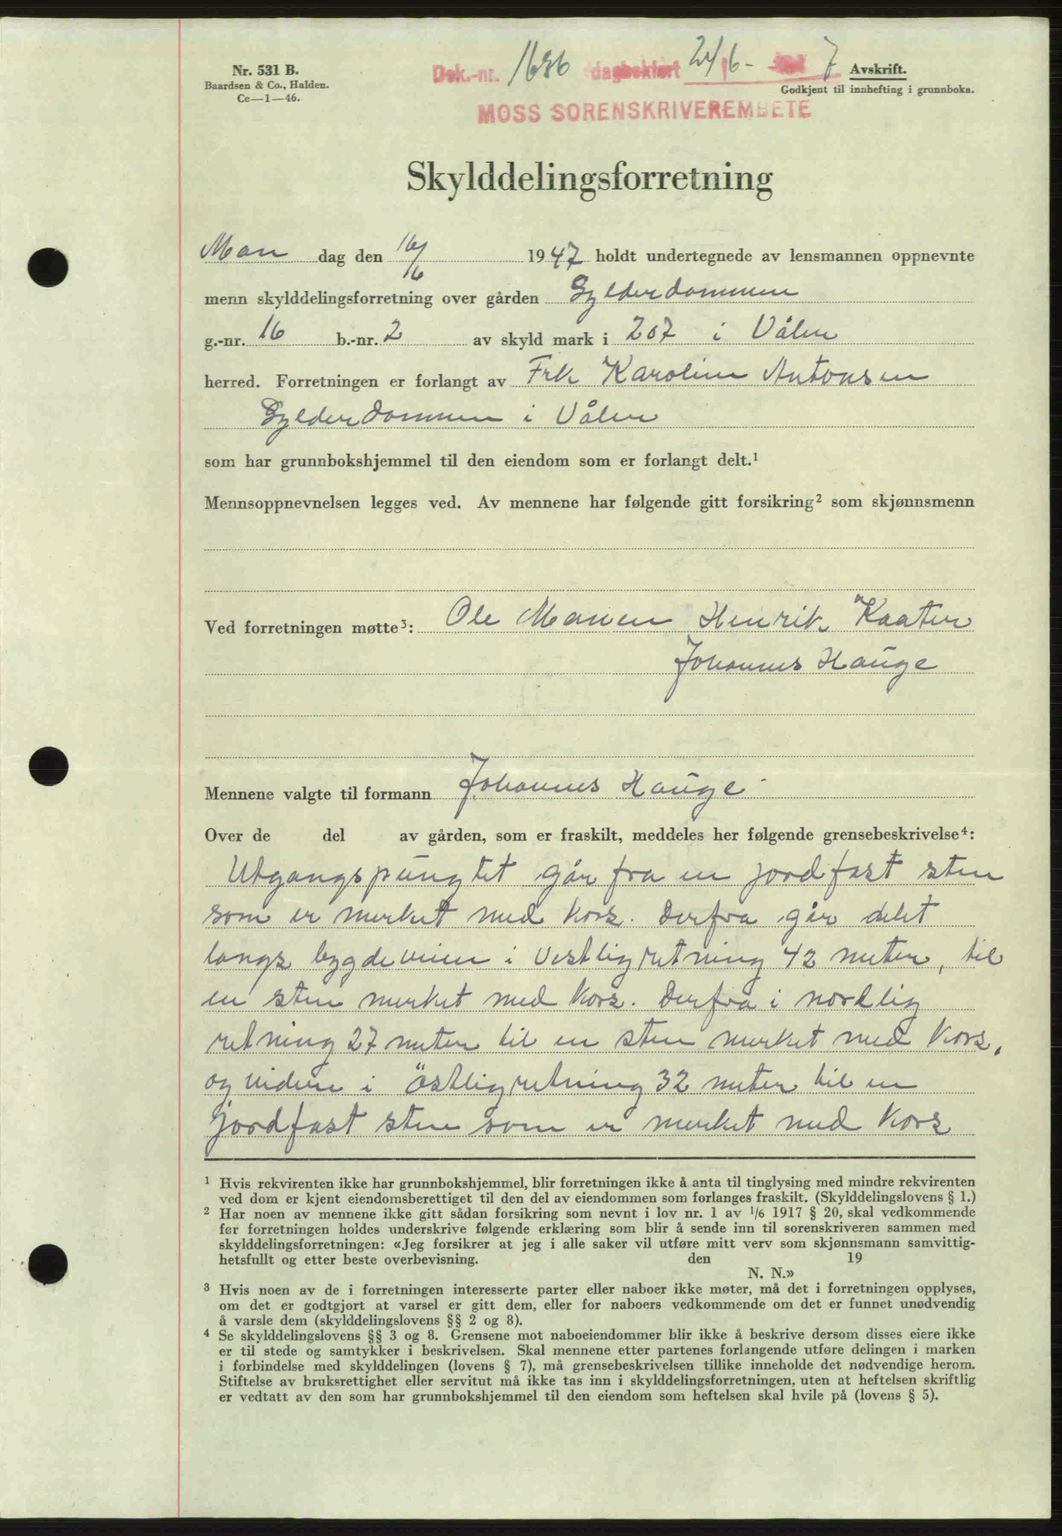 Nr. 531 B.
Baardsen & Co., Halden.
Cc—1—46.
Dok.-nr. 1686 dagbokført 24/6- 7
MOSS SORENSKRIVEREMBETE
Avskrift.
Godkjent til innhefting i grunnboka.
Skylddelingsforretning
Man dag den 16/6 1947 holdt undertegnede av lensmannen oppnevnte
menn skylddelingsforretning over gården Gylderdammen
g.-nr. 16 b.-nr. 2 av skyld mark i 207 i Våler
herred. Forretningen er forlangt av Frk Karoline Antonsen
Gylderdammen i Våler
som har grunnbokshjemmel til den eiendom som er forlangt delt.¹
Mennsoppnevnelsen legges ved. Av mennene har følgende gitt forsikring² som skjønnsmenn
Ved forretningen møtte³: Ole Henrik Kaaten
Johannes Hauge
Mennene valgte til formann Johannes Hauge
Over de del av gården, som er fraskilt, meddeles her følgende grensebeskrivelse⁴:
Utgangspungtet går fra en jordfast sten
som er merket med Kors. Derfra går delet
langs bygdeveien i vestlig retning 42 meter, til
en sten merket med Kors. Derfra i nordlig
retning 27 meter til en sten merket med Kors,
og videre i östlig retning 32 meter til en
jordfast sten som er merket med Kors
¹ Hvis rekvirenten ikke har grunnbokshjemmel, blir forretningen ikke å anta til tinglysing med mindre rekvirenten
ved dom er kjent eiendomsberettiget til den del av eiendommen som forlanges fraskilt. (Skylddelingslovens § 1.)
² Har noen av mennene ikke gitt sådan forsikring som nevnt i lov nr. 1 av 1/6 1917 § 20, skal vedkommende
før forretningen holdes underskrive følgende erklæring som blir å sende inn til sorenskriveren sammen med
skylddelingsforretningen: «Jeg forsikrer at jeg i alle saker vil utføre mitt verv som skjønnsmann samvittig-
hetsfullt og etter beste overbevisning. den 19
N. N.»
³ Hvis noen av de i forretningen interesserte parter eller naboer ikke møter, må det i forretningen opplyses,
om det er godtgjort at varsel er gitt dem, eller for naboers vedkommende om det er funnet unødvendig
å varsle dem (skylddelingslovens §§ 2 og 8).
⁴ Se skylddelingslovens §§ 3 og 8. Grensene mot naboeiendommer blir ikke å beskrive dersom disses eiere ikke
er til stede og samtykker i beskrivelsen. Skal mennene etter partenes forlangende utføre delingen i marken
i forbindelse med skylddelingen (lovens § 7), må grensebeskrivelsen tillike inneholde det nødvendige herom.
Stiftelse av bruksrettighet eller servitut må ikke tas inn i skylddelingsforretningen, uten at heftelsen skriftlig
er vedtatt av den som har grunnbokshjemmel til den eiendom som heftelsen skal hvile på (lovens § 5).